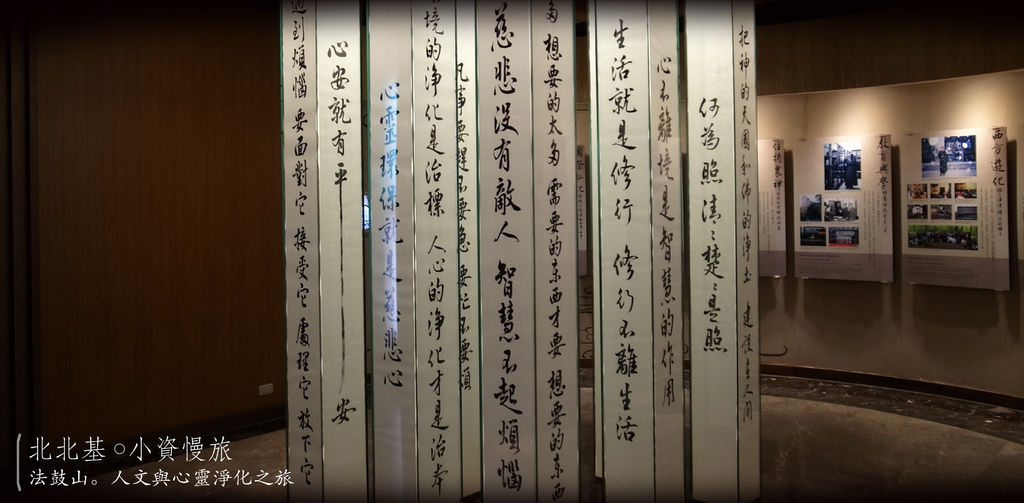 把神的天國和佛的淨土 建設在人間
何為照清清楚楚是照
心不離境是智慧的作用
生活就是修行 修行不離生活
想要的太多 需要的东西才要 想要的东西
慈悲没有敵人 智慧不起煩惱
凡事要趕不要急 要忙不要煩
境的淨化是治標 人心的淨化才是治本
心靈環保就是慈悲心
心安就有平安
遇到煩惱 要面對它 接受它 處理它 放下它
西方遊化
教育興學
北北基○小資慢旅
法鼓山。人文與心靈淨化之旅